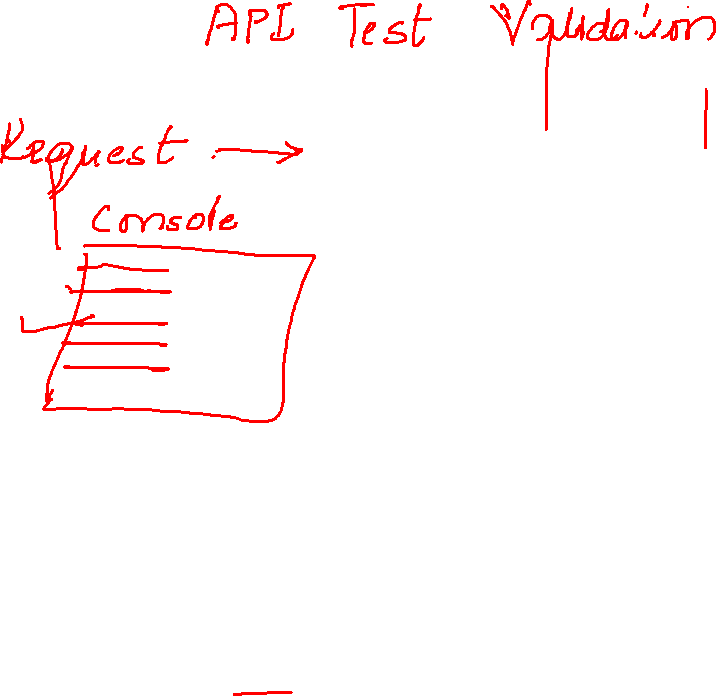 API Test Validation
Request
Console